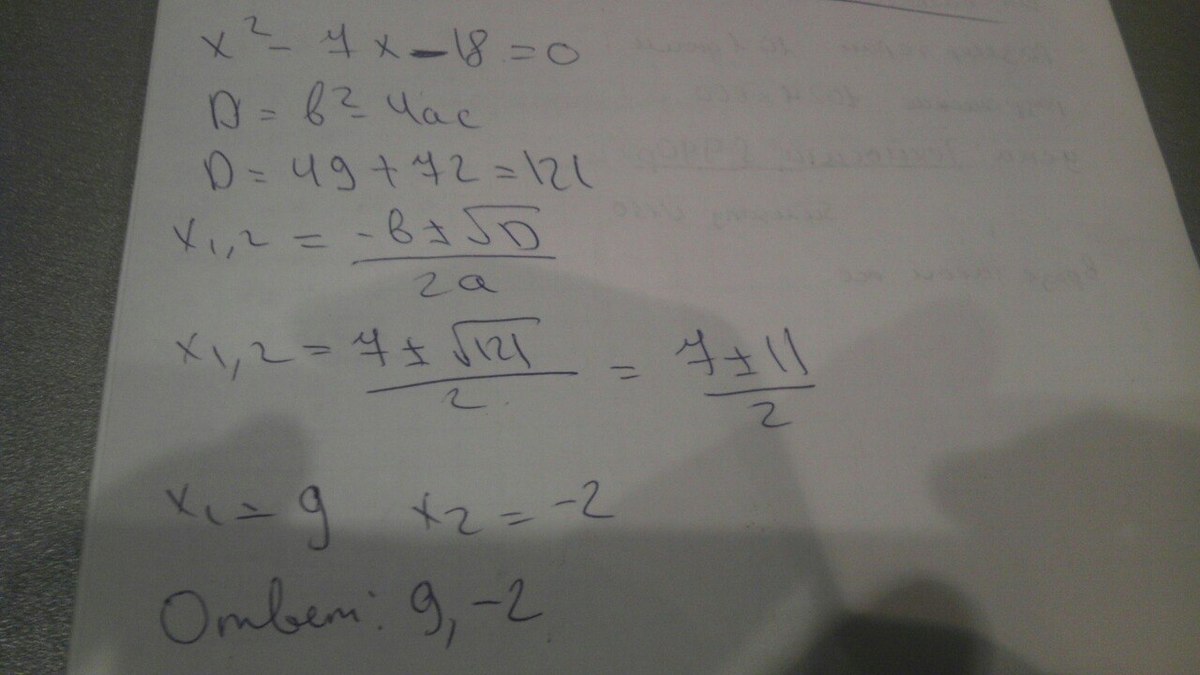 x² - 7x - 18 = 0
D = b² - 4ac
D = 49 + 72 = 121
x₁,₂ = (-b ± √D) / 2a
x₁,₂ = (7 ± √121) / 2 = (7 ± 11) / 2
x₁ = 9 x₂ = -2
Ответ: 9, -2